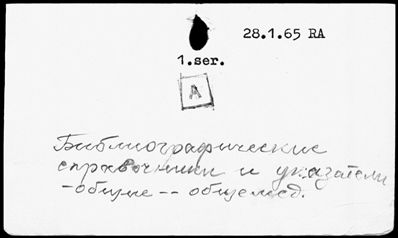 28.1.65 RA
1.ser.
A
Библиографические
справочники и указатели
-общие -- общемед.